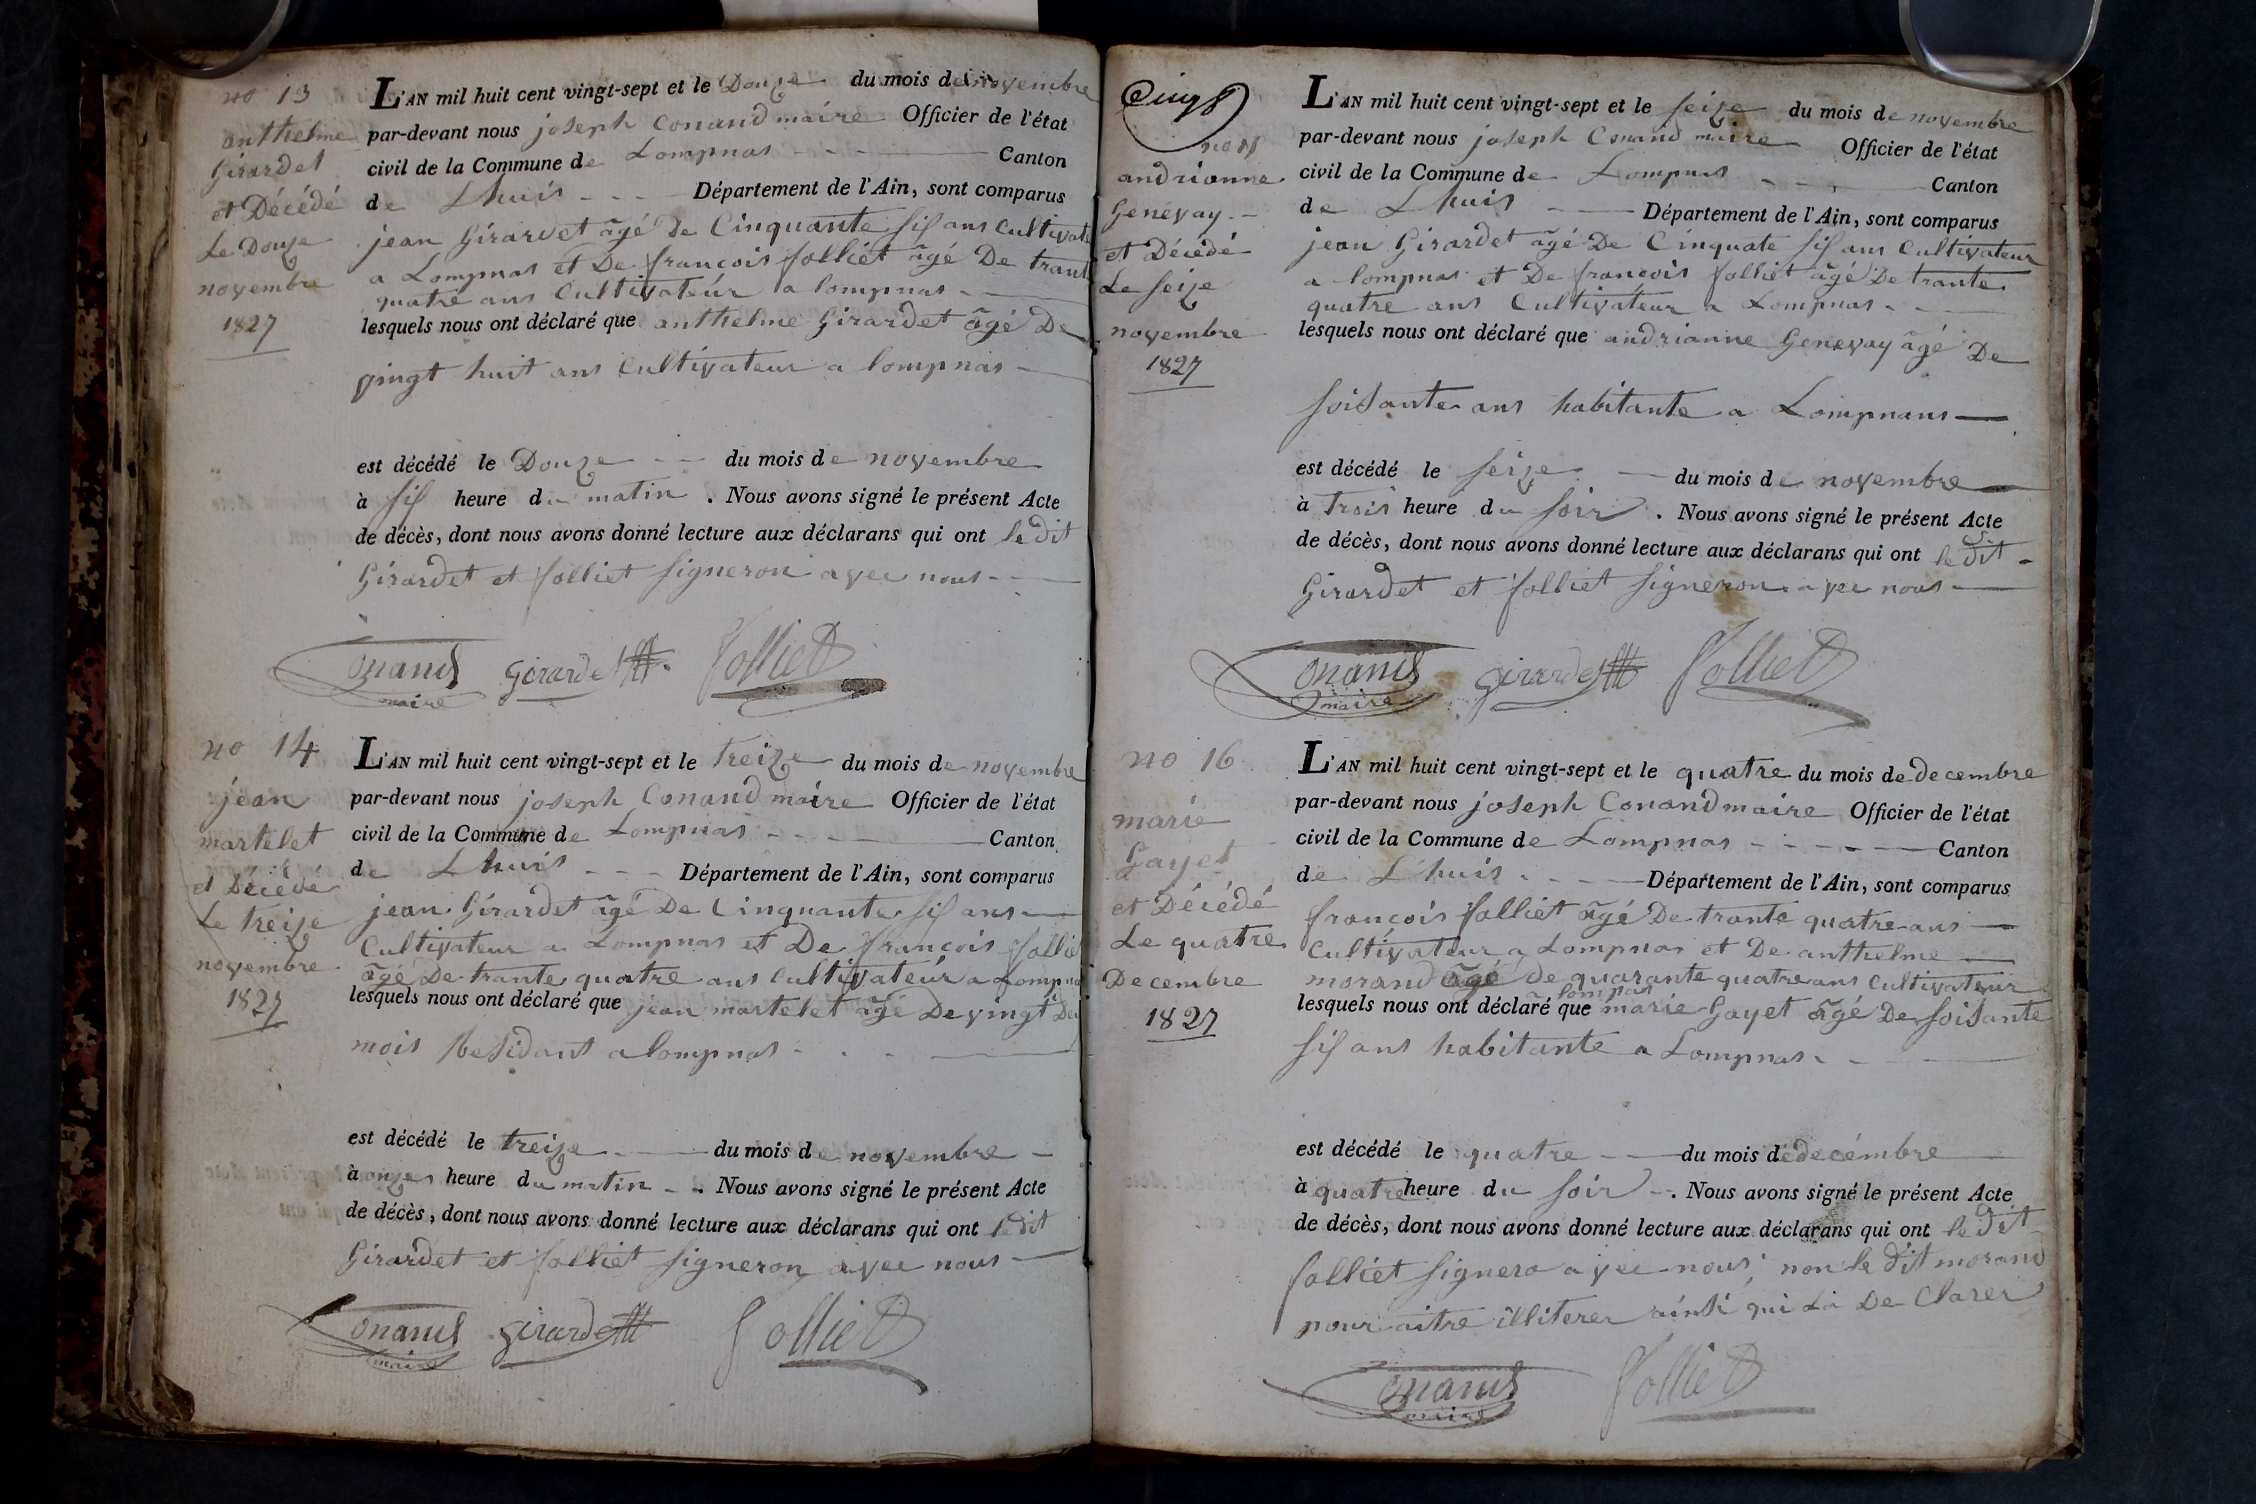 no 13
anthelme
Girardet
et Décédé
Le Douze
novembre
1827
L'AN mil huit cent vingt-sept et le Douze du mois de novembre
par-devant nous joseph Conand maire Officier de l'état
civil de la Commune de Lompnas - - - Canton
de Lhuis - - - Département de l'Ain, sont comparus
jean Girardet âgé de Cinquante sis ans Cultivate
a Lompnas et De francois folliet âgé De trant
quatre ans Cultivateur a lompnas -
lesquels nous ont déclaré que anthelme Girardet âgé De
vingt huit ans Cultivateur a lompnas -
est décédé le Douze - - du mois de novembre
à sis heure du matin . Nous avons signé le présent Acte
de décès, dont nous avons donné lecture aux déclarans qui ont le dit
Girardet et folliet signeron avec nous - -
Conand Girardet folliet
maire
no 14
jean
martelet
et Décédé
Le treize
novembre
1827
L'AN mil huit cent vingt-sept et le treize du mois de novembre
par-devant nous joseph Conand maire Officier de l'état
civil de la Commune de Lompnas - - - Canton
de Lhuis - - - Département de l'Ain, sont comparus
jean Girardet âgé De Cinquante sis ans
Cultivateur a Lompnas et De francois follie
âgé De trante quatre ans Cultivateur a Lompna
lesquels nous ont déclaré que jean martelet âgé De vingt De
mois Residant a lompnas - - -
est décédé le treize - du mois de novembre -
à onzes heure du matin - . Nous avons signé le présent Acte
de décès, dont nous avons donné lecture aux déclarans qui ont le dit
Girardet et folliet signeron avec nous -
Conand Girardet folliet
maire
Cinq
no 15
andrianne
Genevay -
et Décédé
Le seize
novembre
1827
L'AN mil huit cent vingt-sept et le seize du mois de novembre
par-devant nous joseph Conand maire Officier de l'état
civil de la Commune de Lompnas - - - Canton
de Lhuis - - Département de l'Ain, sont comparus
jean Girardet âgé De Cinquate sis ans Cultivateur
a lompnas et De françois folliet âgé De trante
quatre ans Cultivateur a Lompnas - -
lesquels nous ont déclaré que andrianne Genevay âgé De
soisante ans habitante a Lompnans -
est décédé le seize - du mois de novembre
à trois heure du soir . Nous avons signé le présent Acte
de décès, dont nous avons donné lecture aux déclarans qui ont le dit -
Girardet et folliet signeron avec nous -
Conand Girardet folliet
maire
no 16
marie
Gayet
et Décédé
Le quatre
Decembre
1827
L'AN mil huit cent vingt-sept et le quatre du mois de decembre
par-devant nous joseph Conand maire Officier de l'état
civil de la Commune de Lompnas - - - - Canton
de Lhuis - - Département de l'Ain, sont comparus
françois folliet âgé De trante quatre ans
Cultivateur a Lompnas et De anthelme
morand âgé de quarante quatre ans Cultivateur
lompnas
lesquels nous ont déclaré que marie Gayet âgé De soisante
sis ans habitante a Lompnas - -
est décédé le quatre - du mois de decémbre
à quatre heure du soir - . Nous avons signé le présent Acte
de décès, dont nous avons donné lecture aux déclarans qui ont le dit
folliet signera avec nous, non le dit morand
pour aitre illiterer ainsi qui La De Clarer
Conand folliet
maire